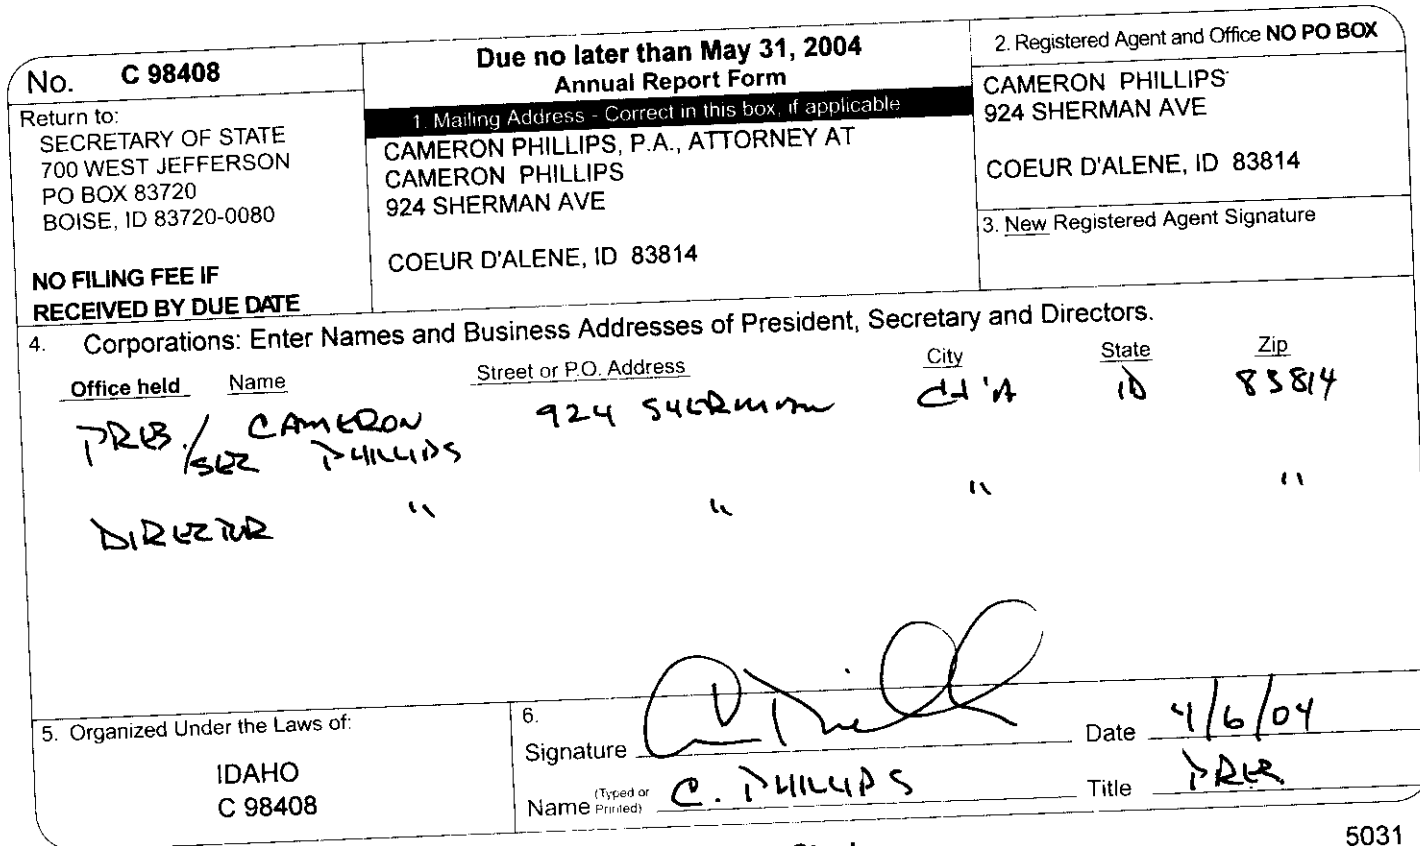 No. C 98408
Return to:
SECRETARY OF STATE
700 WEST JEFFERSON
PO BOX 83720
BOISE, ID 83720-0080
NO FILING FEE IF
RECEIVED BY DUE DATE
Due no later than May 31, 2004
Annual Report Form
1. Mailing Address - Correct in this box, if applicable
CAMERON PHILLIPS, P.A., ATTORNEY AT
CAMERON PHILLIPS
924 SHERMAN AVE
COEUR D'ALENE, ID 83814
2. Registered Agent and Office NO PO BOX
CAMERON PHILLIPS
924 SHERMAN AVE
COEUR D'ALENE, ID 83814
3. New Registered Agent Signature
4. Corporations: Enter Names and Business Addresses of President, Secretary and Directors.
Office held Name Street or P.O. Address City State Zip
PRES. / CAMERON 924 SHERMAN Cd'A ID 83814
SEC PHILLIPS
DIRECTOR " " " "
5. Organized Under the Laws of:
IDAHO
C 98408
6.
Signature Date 4/6/04
Name (Typed or Printed) C. PHILLIPS Title PRES
5031